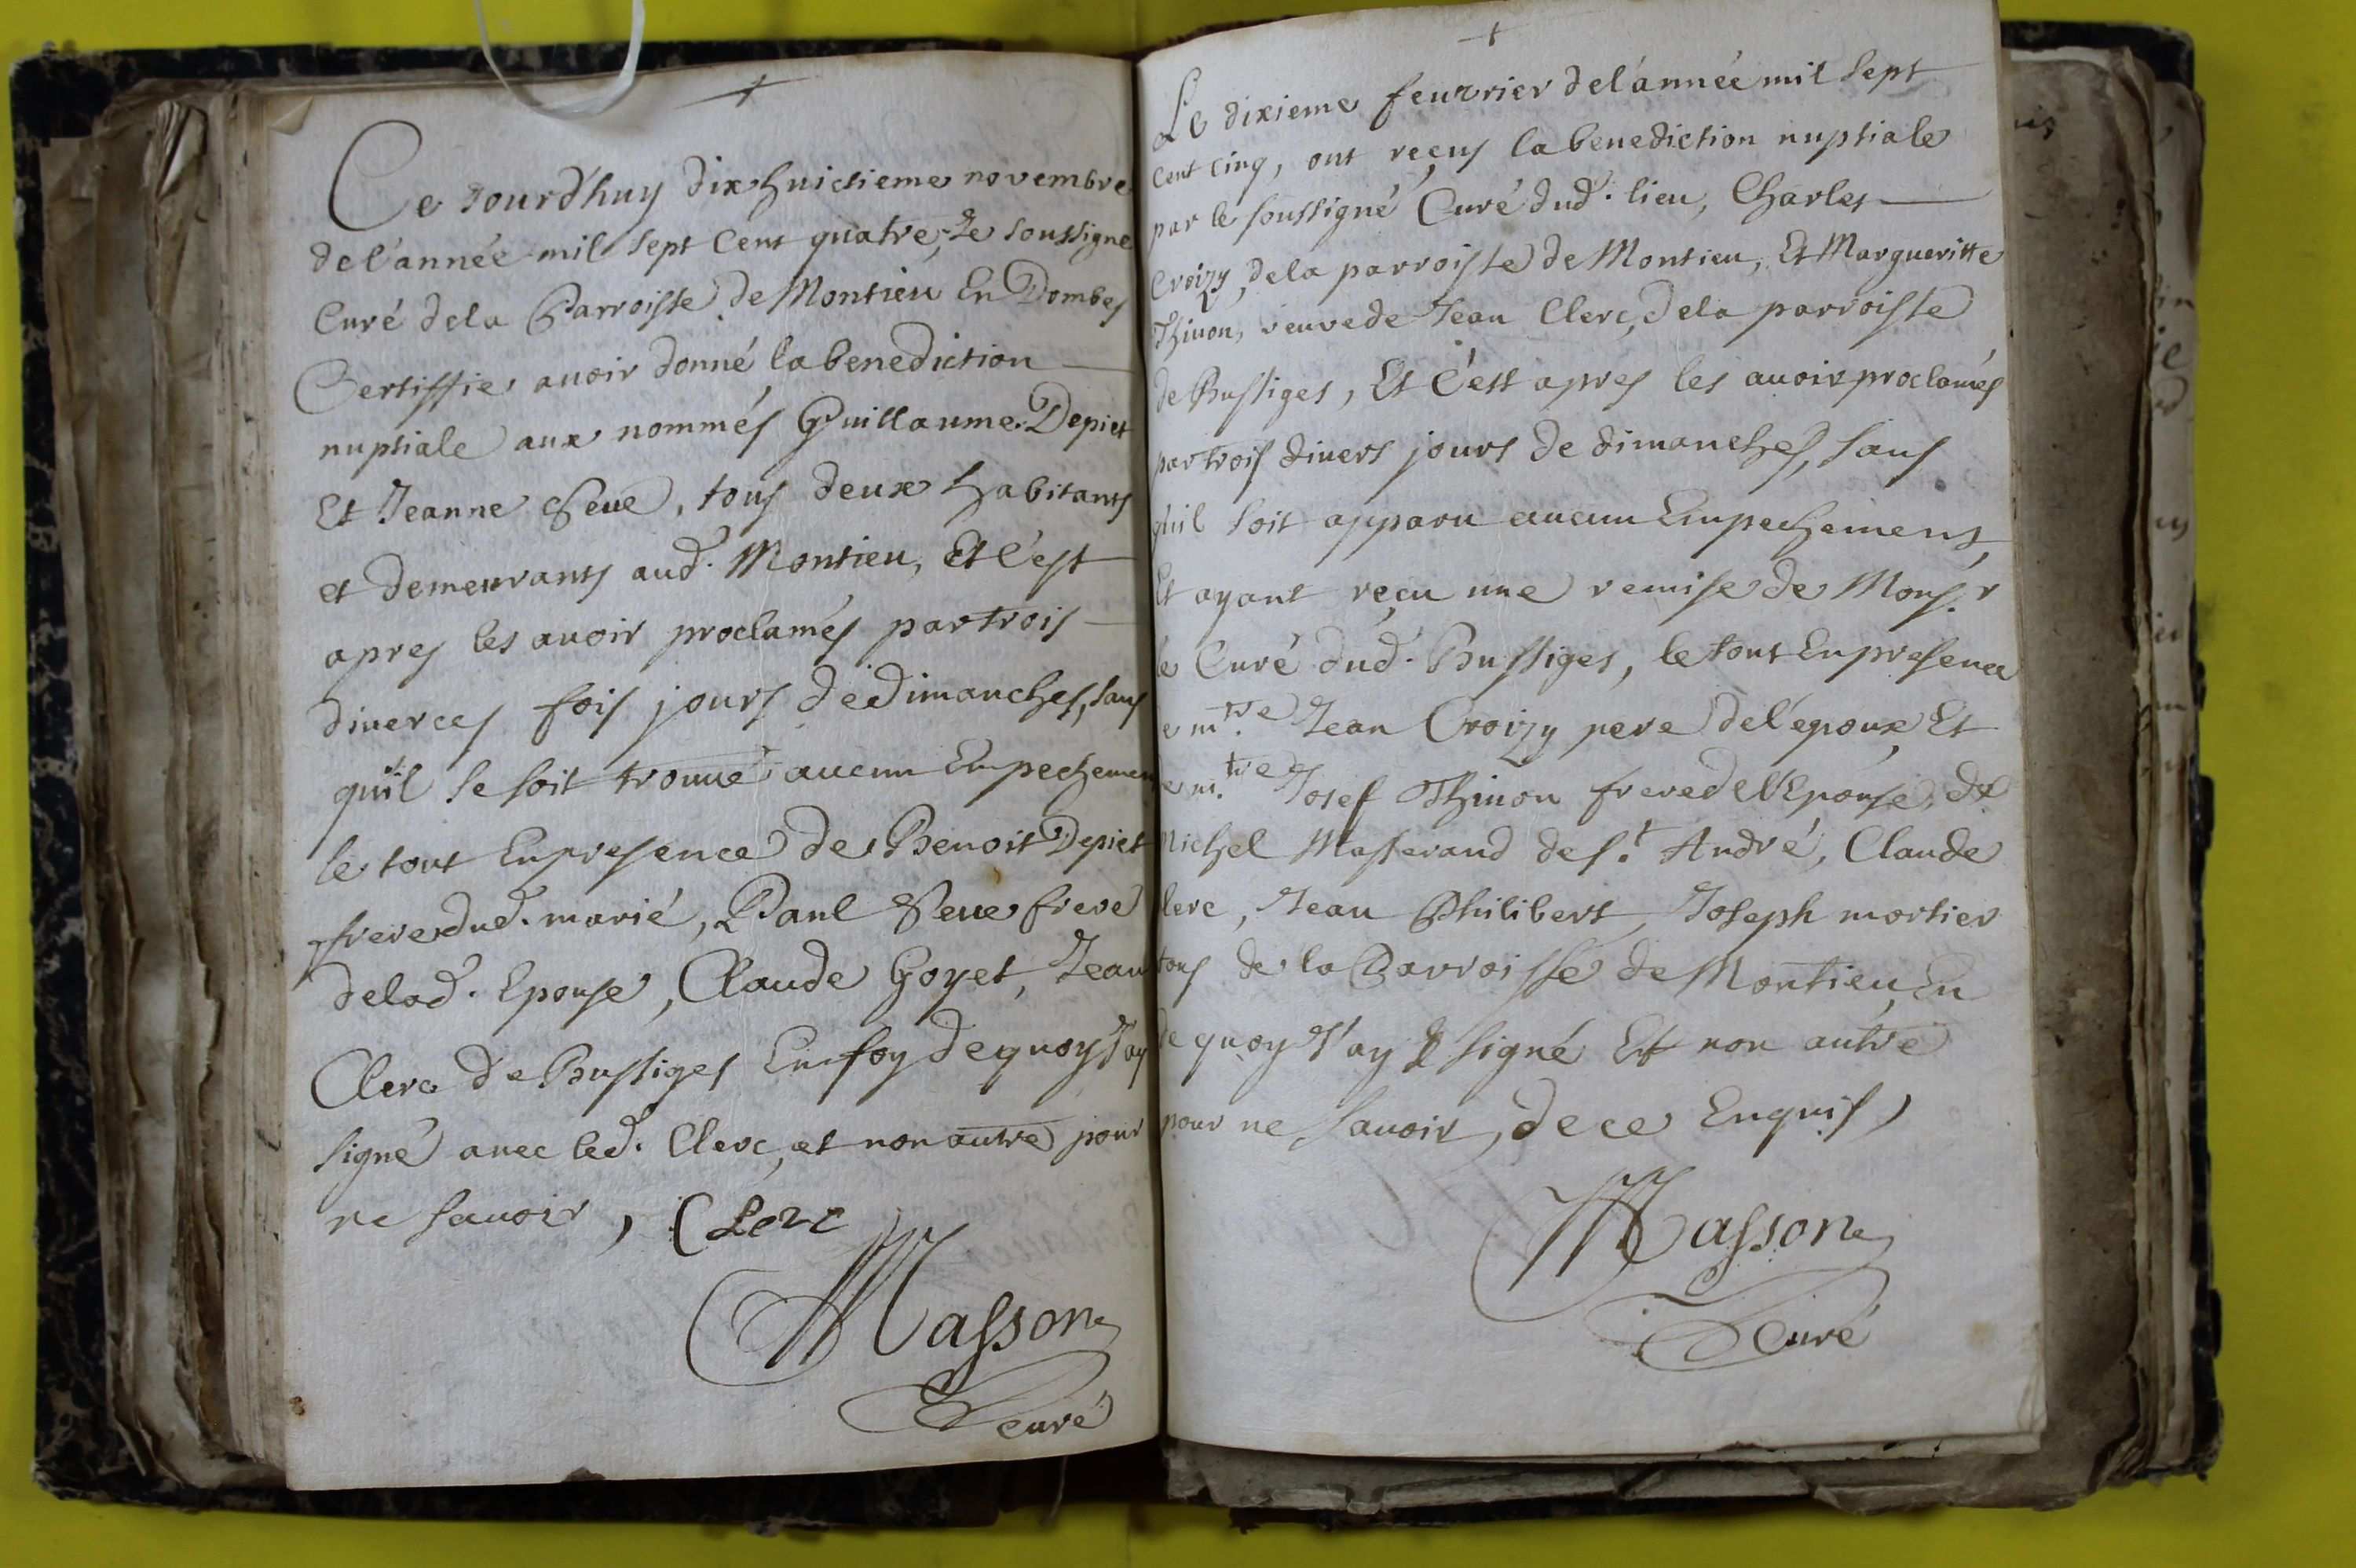 Ce Jourd'huy dix huictieme novembre
de l'année mil sept cent quatre, Je soussigné
Curé de la Parroisse de Montieu En Dombes
Certiffie avoir donné la benediction
nuptiale aux nommés Guillaume Depiet
Et Jeanne Seue, tous deux habitants
et demeurants aud. Montieu, Et c'est
apres les auoir proclamés par trois
diuerces fois jours de dimanches, sans
qu'il se soit trouué aucun Empechemen
le tout En presence de Benoit Depiet
frere dud. marié, Paul Seue frere
de lad. Epouse, Claude Goyet, Jean
Clerc de Bussiges En foy de quoy J'ay
signé auec led. Clerc, et non autre pour
ne sauoir, Clerc
Masson
Curé
Le dixieme feuvrier de l'année mil sept
cent cinq, ont reçus la benediction nuptiale
par le soussigné Curé dud. lieu, Charles
Croizy, de la parroisse de Montieu, Et Margueritte
Thinon, veuve de Jean Clerc, de la parroisse
de Bussiges, Et c'est apres les auoir proclamés
par trois diuers jours de dimanches, sans
qu'il soit apparu aucun Empechement,
Et ayant reçu une remise de Mons.r
le Curé dud. Bussiges, le tout En presence
e m.tre Jean Croizy pere de l'epoux, Et
e m.tre Josef Thinon frere de l'Epouse, de
Michel Masserand de s.t André, Claude
lerc, Jean Philibert, Joseph mortier
tous de la Parroisse de Montieu, En
de quoy J'ay signé Et non autre
pour ne sauoir, de ce Enquis,
Masson
Curé